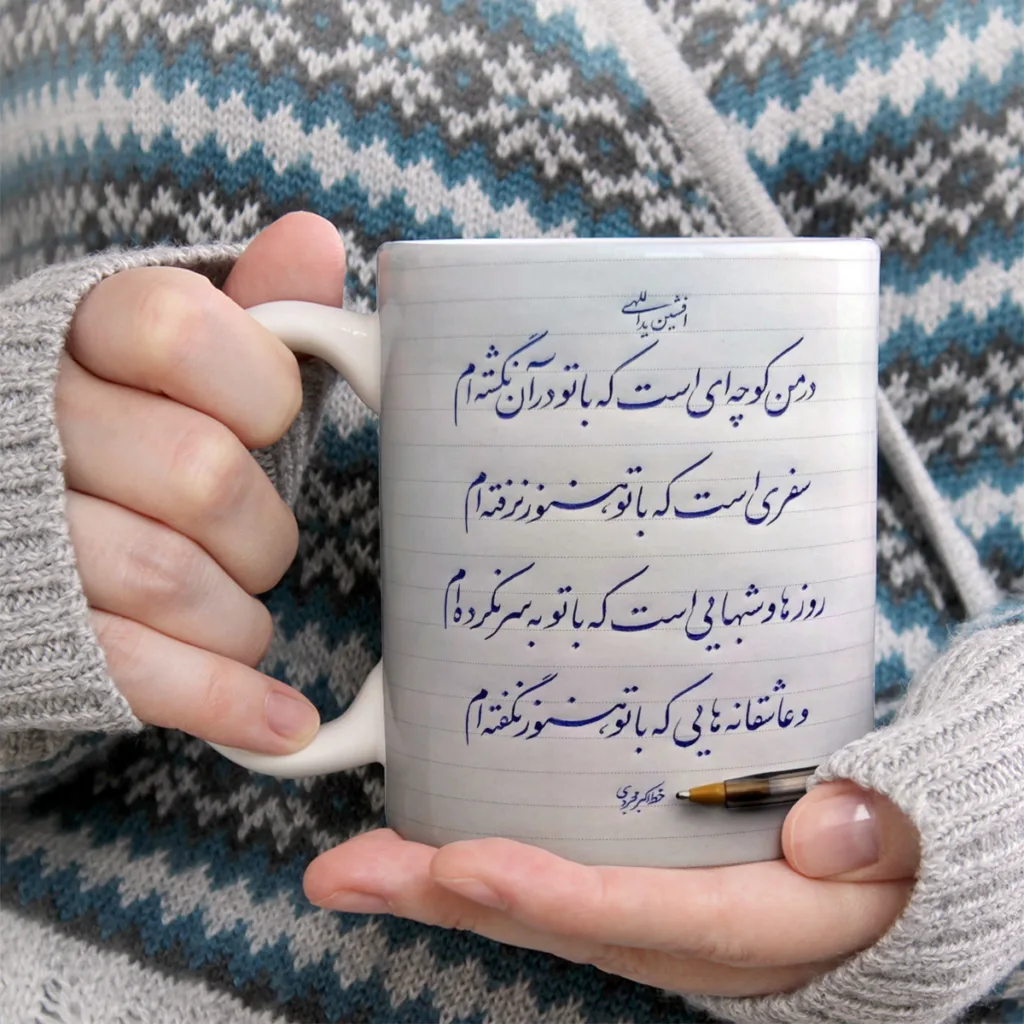 افشین یداللهی
در من کوچه ای است که با تو در آن نگشته ام
سفری است که با تو هنوز نرفته ام
روزها و شبهایی است که با تو به سر نکرده ام
و عاشقانه هایی که با تو هنوز نگفته ام
خط اکبر مجردی